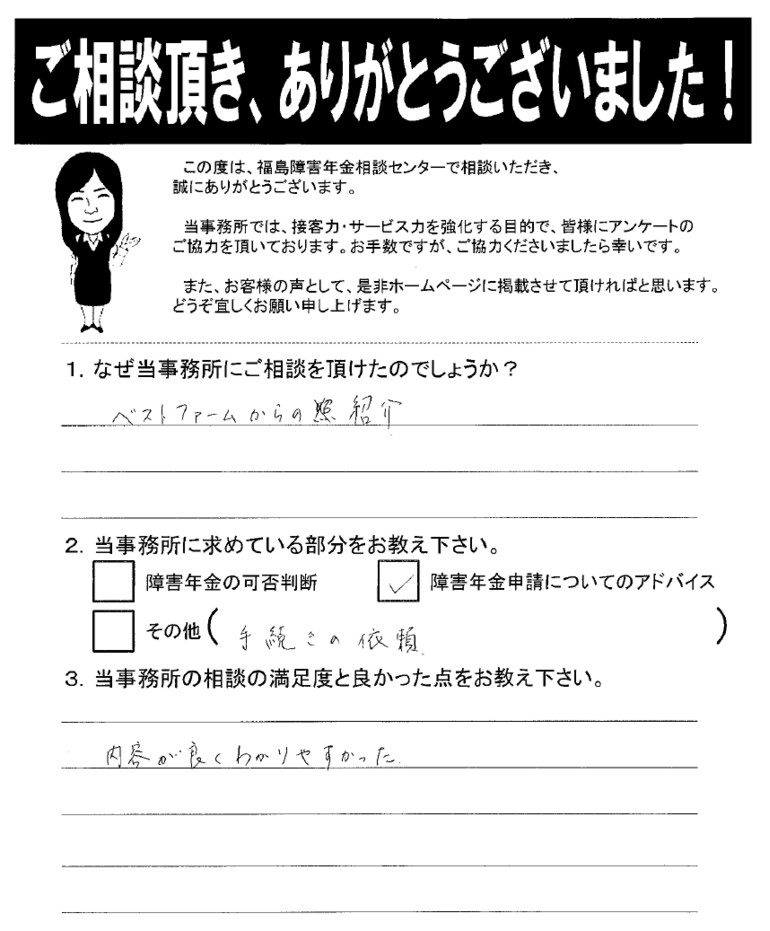 ご相談頂き、ありがとうございました！
この度は、福島障害年金相談センターで相談いただき、
誠にありがとうございます。
当事務所では、接客力・サービス力を強化する目的で、皆様にアンケートの
ご協力を頂いております。お手数ですが、ご協力くださいましたら幸いです。
また、お客様の声として、是非ホームページに掲載させて頂ければと思います。
どうぞ宜しくお願い申し上げます。
1. なぜ当事務所にご相談を頂けたのでしょうか？
ベストファームからの紹介
2. 当事務所に求めている部分をお教え下さい。
障害年金の可否判断 ✓ 障害年金申請についてのアドバイス
その他( 手続きの依頼 )
3. 当事務所の相談の満足度と良かった点をお教え下さい。
内容が良くわかりやすかった.